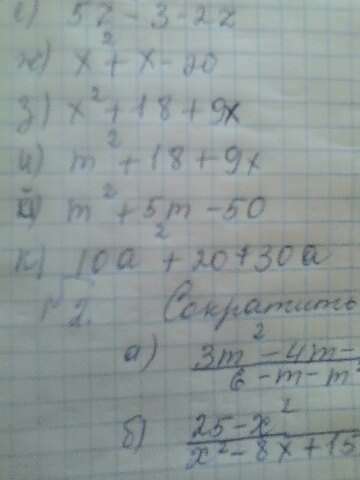 е) 5z - 3 - 2z
ж) x² + x - 20
з) x² + 18 + 9x
и) m² + 18 + 9x
й) m² + 5m - 50
к) 10a² + 20 + 30a
2. Сократить
а) 3m² - 4m - / 6 - m - m²
б) 25 - x² / x² - 8x + 15